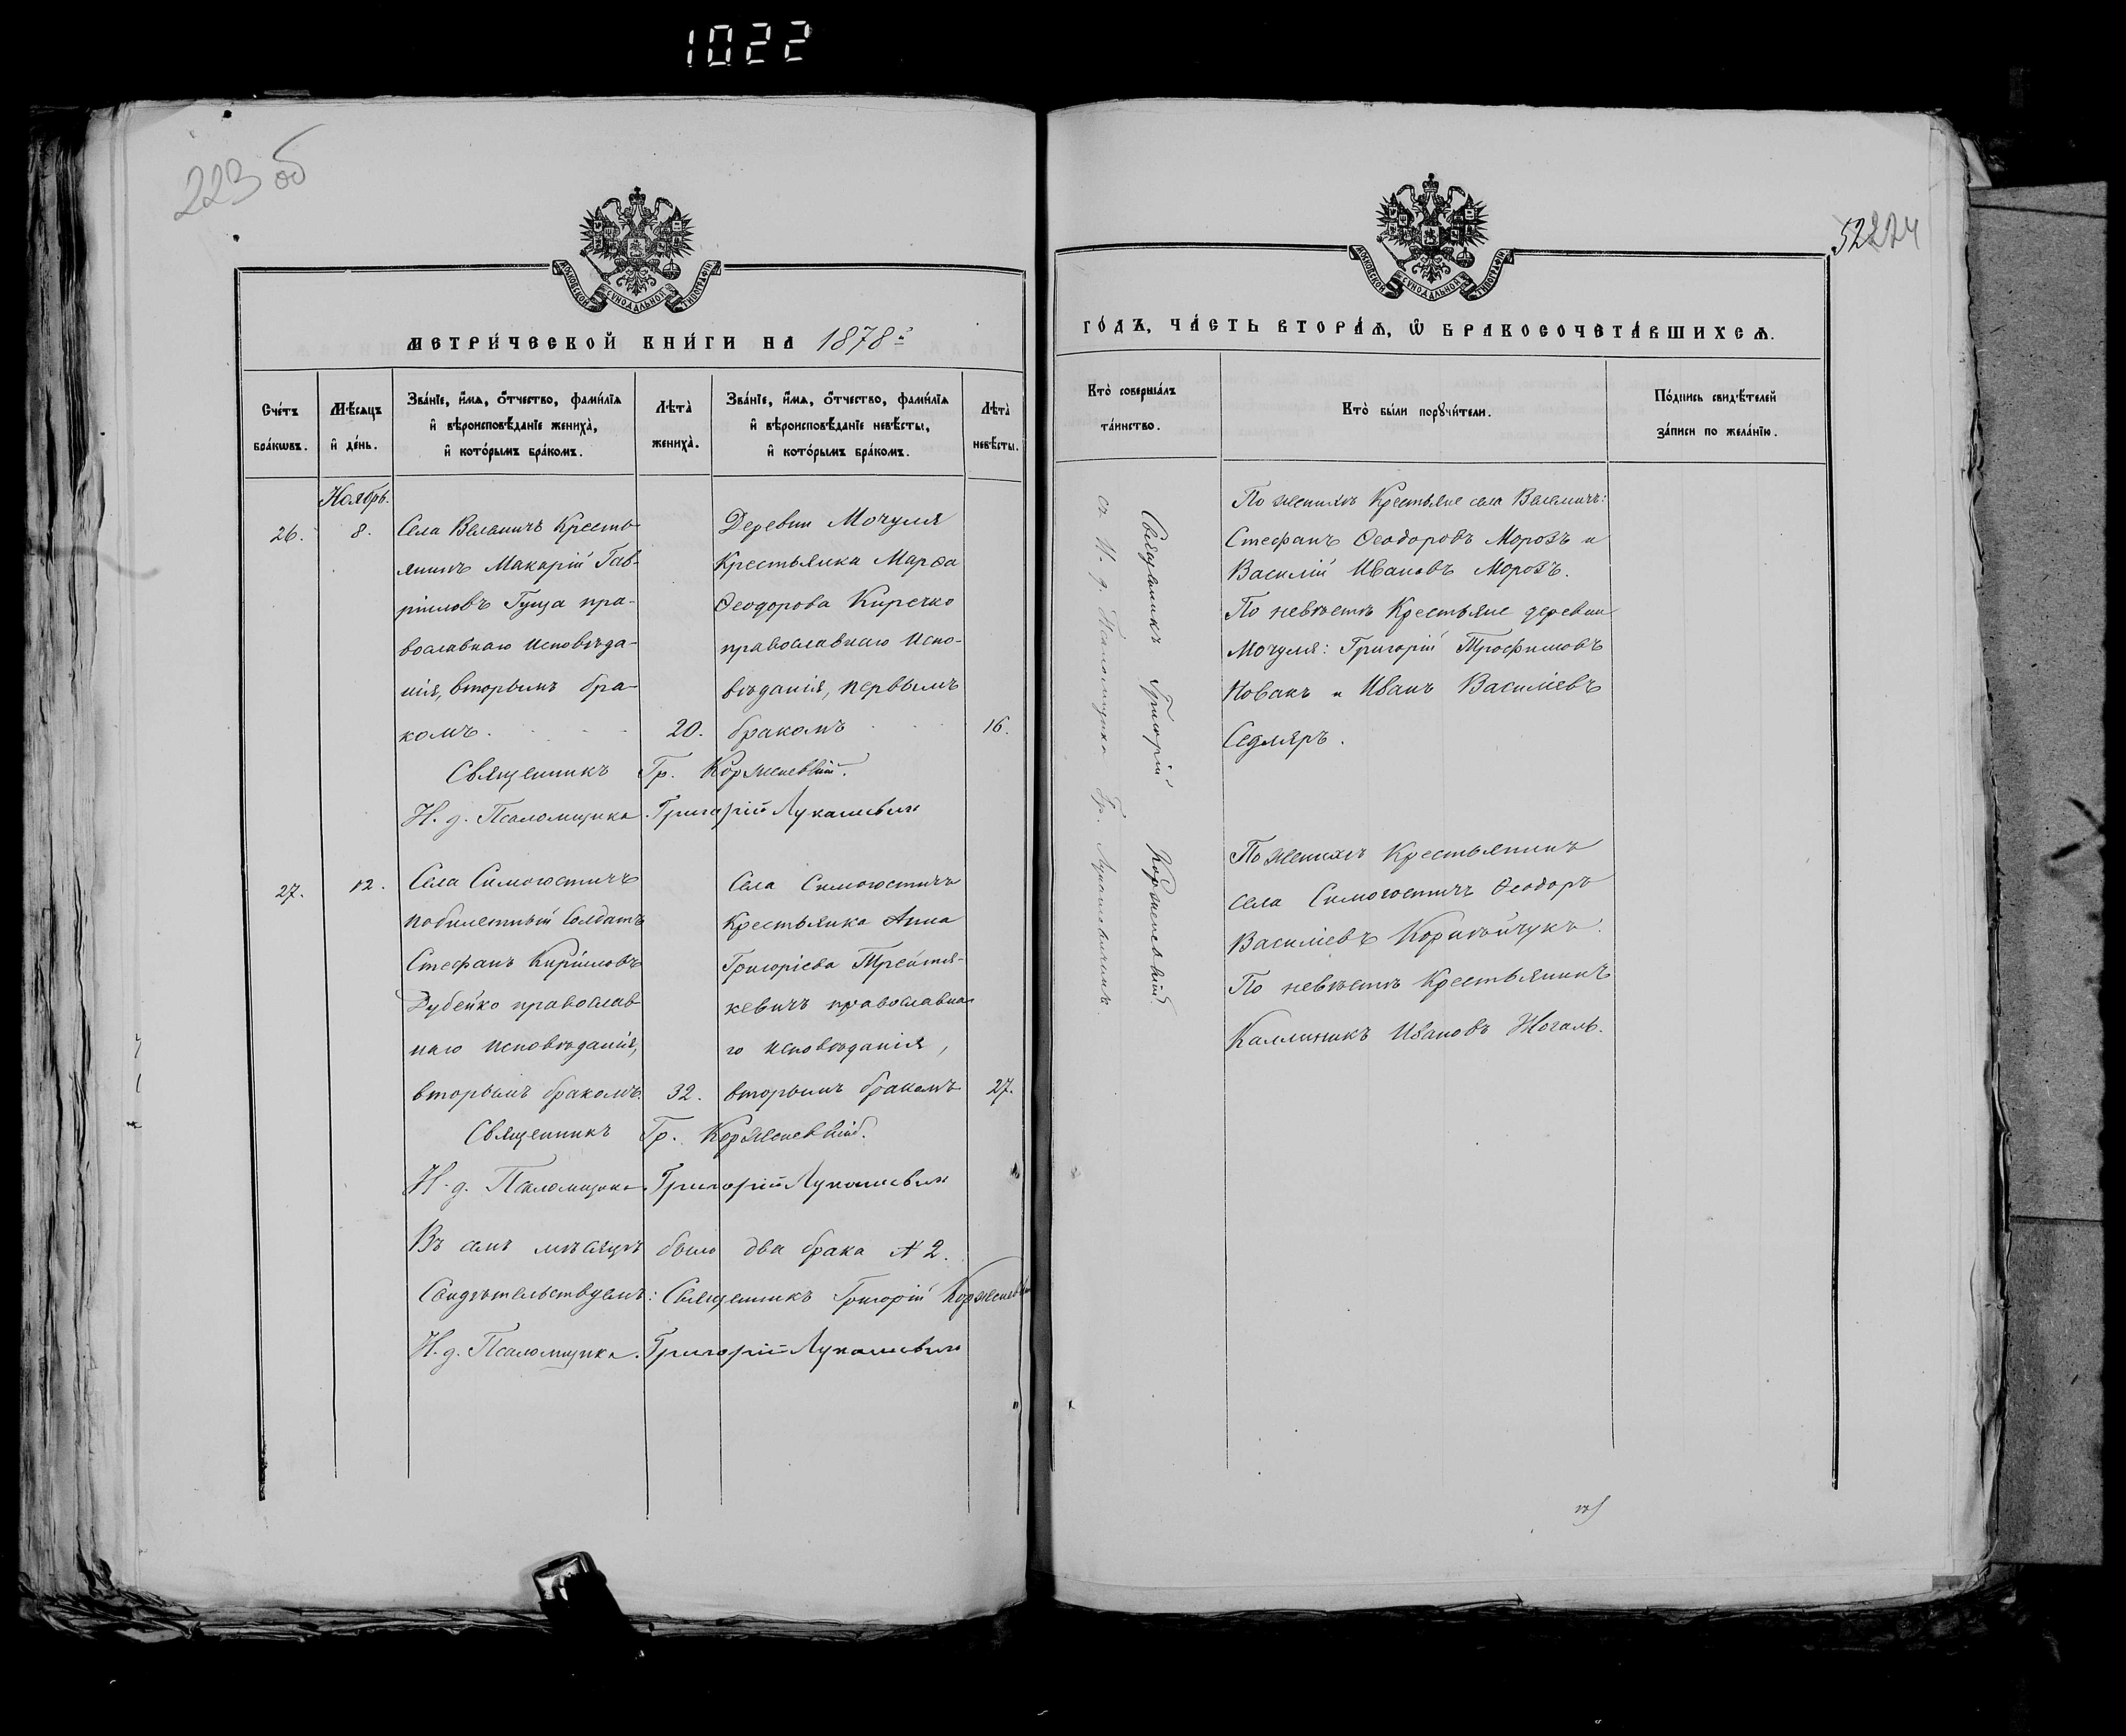 1022
223 об
МОСКОВСКОЙ СѴНОДАЛЬНОЙ ТИПОГРАФІИ
МЕТРИ́ЧЕСКОЙ КНИ́ГИ НА 1878й
Сче́тъ бра́кѡвъ.
Мѣ́сѧцъ и҆ де́нь.
Зва́нїе, и҆́мѧ, о҆́тчество, фами́лїѧ
и҆ вѣроисповѣ́данїе жениха̀,
и҆ кото́рымъ бра́комъ.
Лѣта̀ жениха̀.
Зва́нїе, и҆́мѧ, о҆́тчество, фами́лїѧ
и҆ вѣроисповѣ́данїе невѣ́сты,
и҆ кото́рымъ бра́комъ.
Лѣта̀ невѣ́сты.
Ноябрь.
26.
8.
Села Велемичъ Кресть-
янинъ Макарій Гав-
ріиловъ Гуща пра-
вославнаго исповѣда-
нія, вторымъ бра-
комъ.
20.
Деревни Мочуля
Крестьянка Марѳа
Ѳеодорова Киречко
православнаго испо-
вѣданія, первымъ
бракомъ
16.
Священникъ Гр. Корженевскій.
И. д. Псаломщика Григорій Лукашевич
27.
12.
Села Симогостичъ
побилетный Солдатъ
Стефанъ Кириловъ
Дубейко православ-
наго исповѣданія,
вторымъ бракомъ.
32.
Села Симогостичъ
Крестьянка Анна
Григоріева
кевичъ православна-
го исповѣданія,
вторымъ бракомъ
27.
Священникъ Гр. Корженевскій.
И. д. Псаломщика Григорій Лукашевич
Въ семъ мѣсяцѣ было два брака № 2.
Свидѣтельствуемъ: Священникъ Григорій Корженевскій
И. д. Псаломщика Григорій Лукашевич
52 224
МОСКОВСКОЙ СѴНОДАЛЬНОЙ ТИПОГРАФІИ
ГО́ДЪ, ЧА́СТЬ ВТОРА́Ѧ, Ѡ҆ БРАКОСОЧЕТА́ВШИХСѦ.
Кто̀ соверша́лъ та́инство.
Кто̀ бы́ли порꙋчи́тели.
По́дпись свидѣ́телей
за́писи по жела́нїю.
Священникъ Григорій Корженевскій
съ И. д. Псаломщика Гр. Лукашевичемъ.
По женихѣ Крестьяне села Велемичъ:
Стефанъ Ѳеодоровъ Морозъ и
Василій Ивановъ Морозъ.
По невѣстѣ Крестьяне деревни
Мочуля: Григорій Трофимовъ
Новакъ и Иванъ Василіевъ
Седляръ.
По женихѣ Крестьянинъ
села Симогостичъ Ѳеодоръ
Василіевъ
По невѣстѣ Крестьянинъ
Каллиникъ Ивановъ Жогаль.